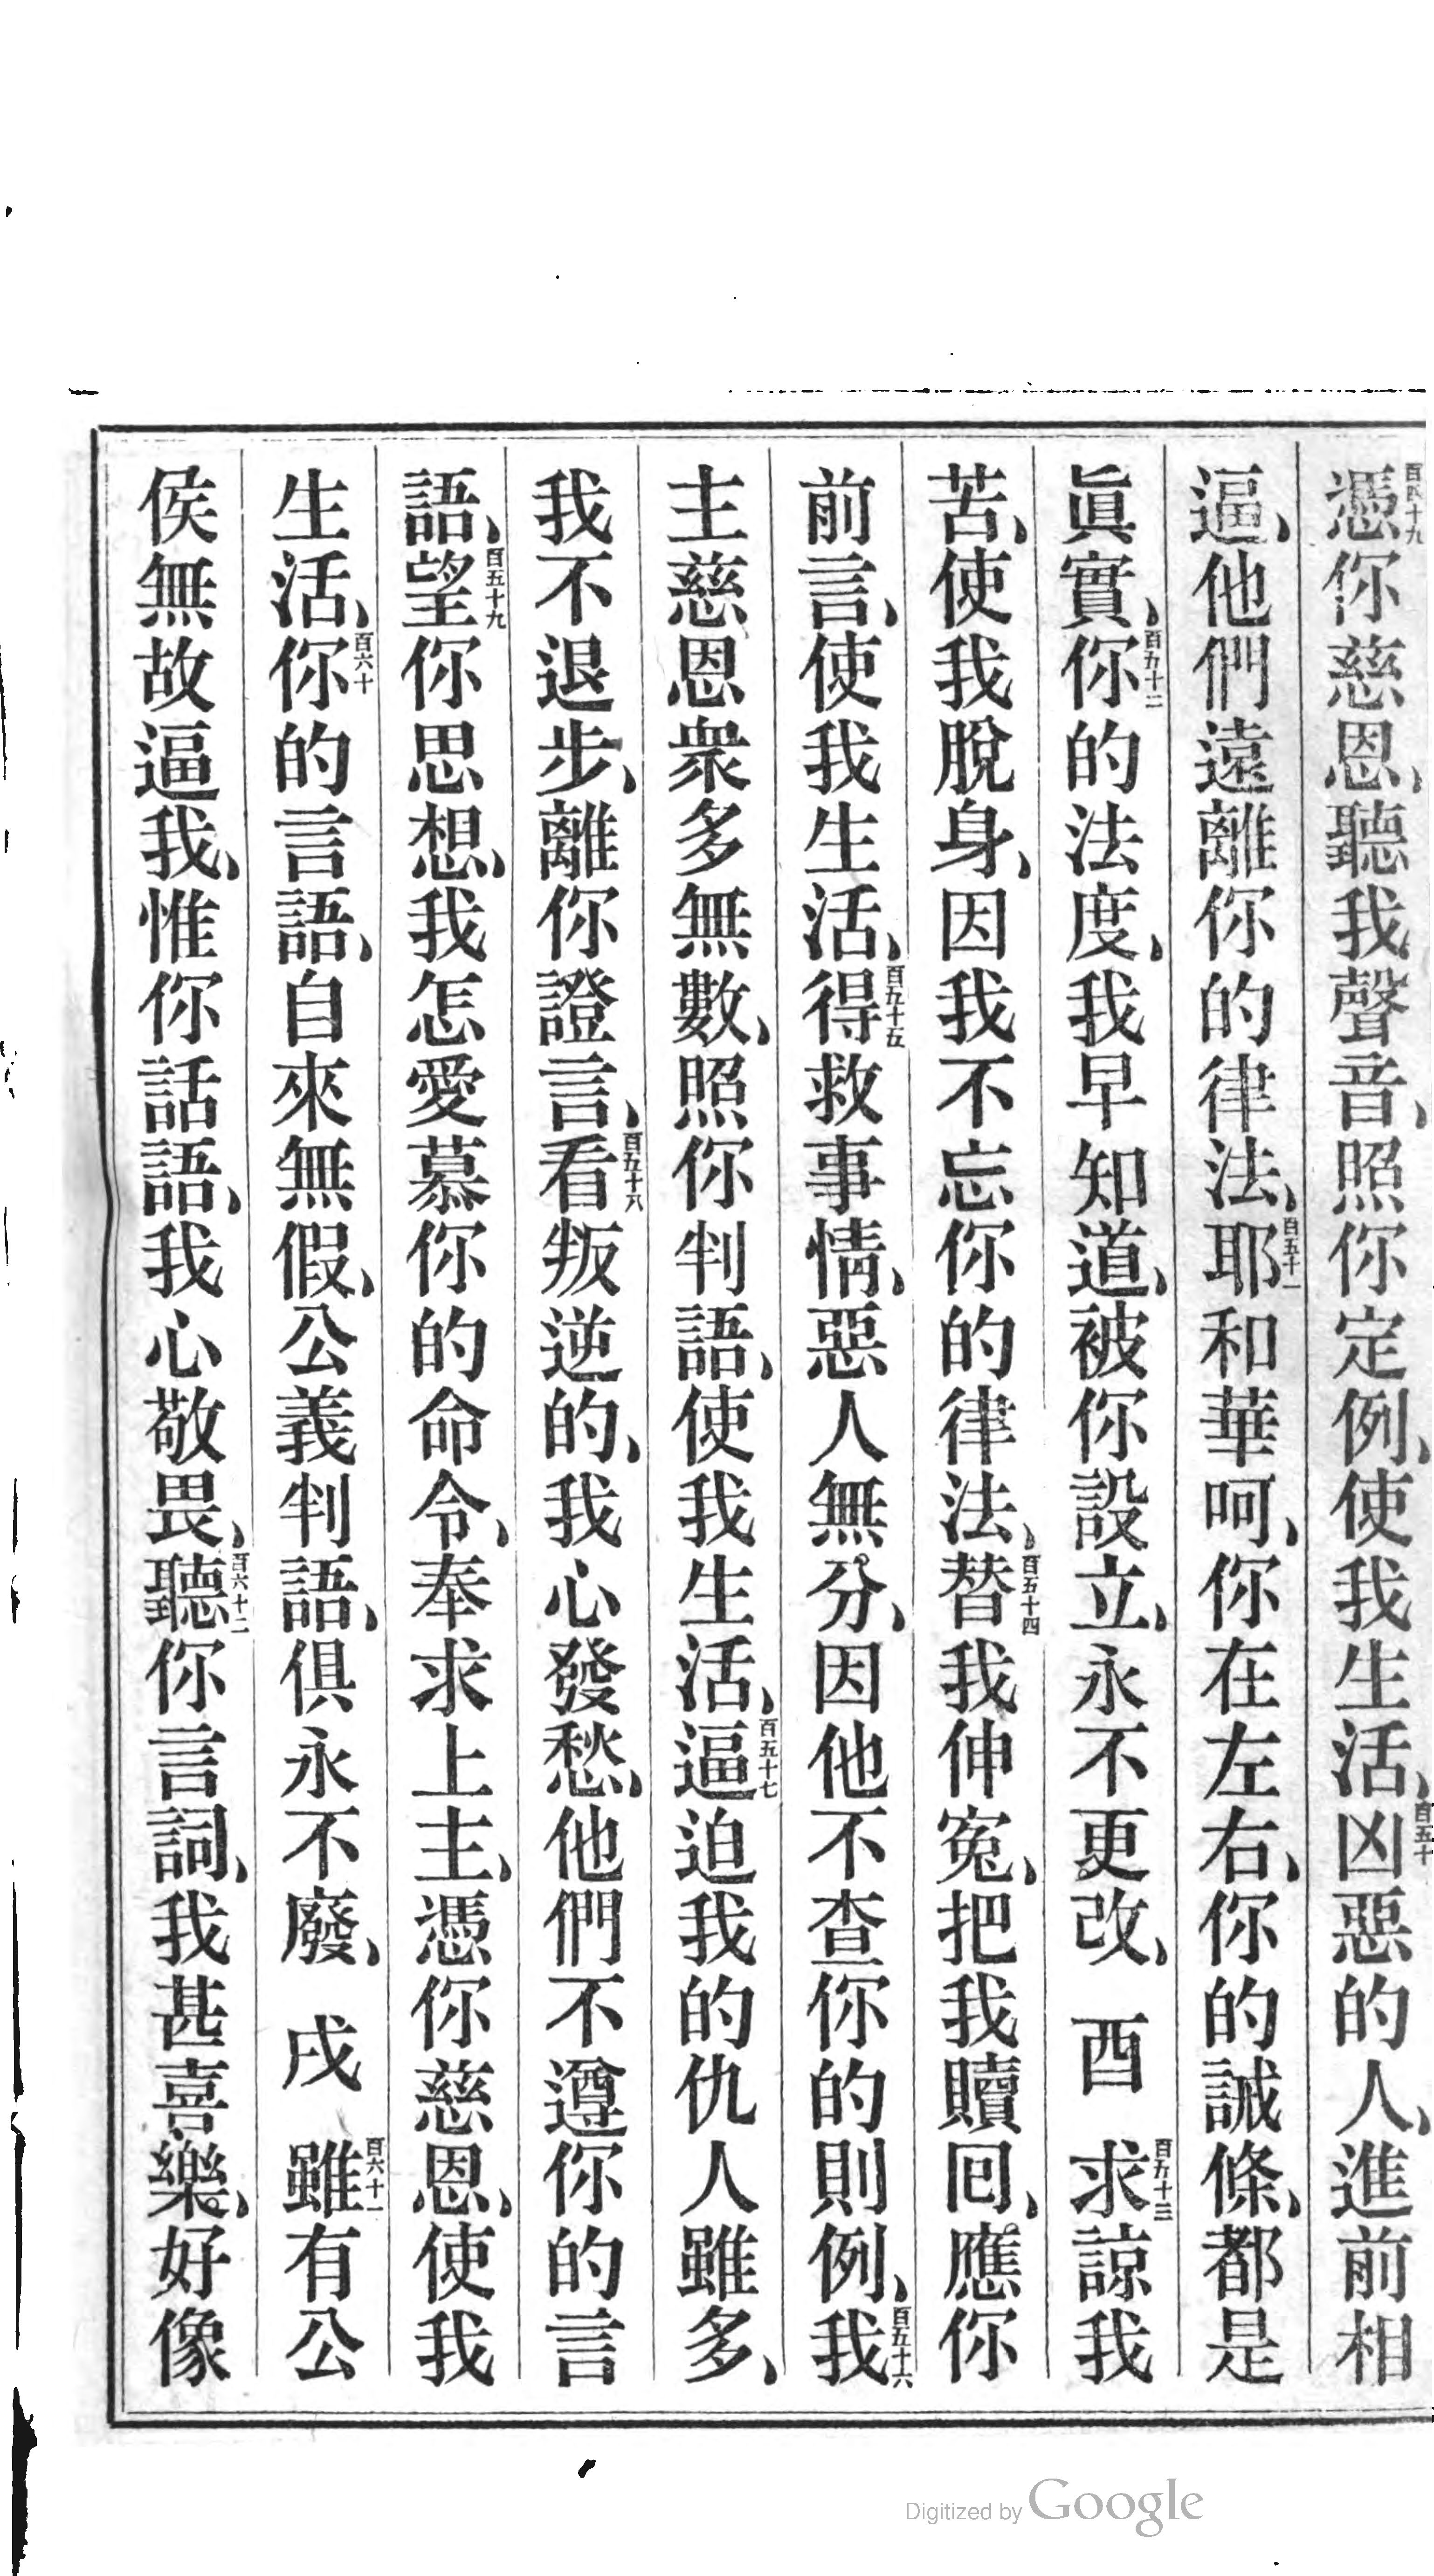 百四十九憑你慈恩、聽我聲音、照你定例、使我生活、百五十凶惡的人、進前相
逼、他們遠離你的律法、百五十一耶和華呵、你在左右、你的誡條、都是
眞實、百五十二你的法度、我早知道、被你設立、永不更改、 酉 百五十三求諒我
苦、使我脫身、因我不忘你的律法、百五十四替我伸寃、把我贖囘、應你
前言、使我生活、百五十五得救事情、惡人無分、因他不查你的則例、百五十六我
主慈恩衆多無數、照你判語、使我生活、百五十七逼迫我的仇人雖多、
我不退步、離你證言、百五十八看叛逆的、我心發愁、他們不遵你的言
語、百五十九望你思想、我怎愛慕你的命令、奉求上主、憑你慈恩、使我
生活、百六十你的言語、自來無假、公義判語、俱永不廢、 戌 百六十一雖有公
侯無故逼我、惟你話語、我心敬畏、百六十二聽你言詞、我甚喜樂、好像
Digitized by Google